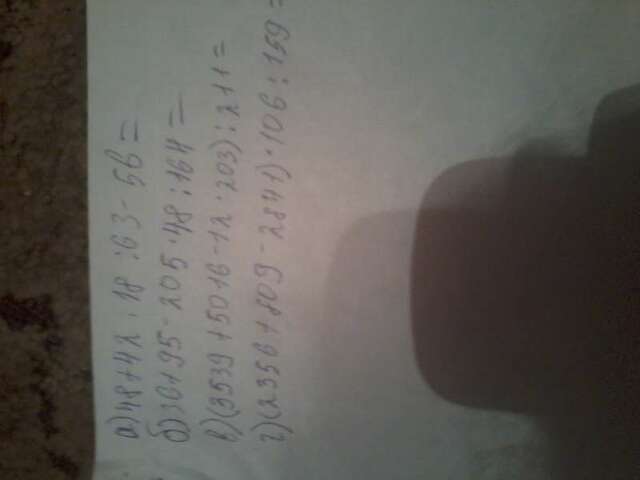 а) 48+42·18:63-56=
б) 30+95-205·48:164=
в) (3539+5016-12·203):211=
г) (2356+809-2841)·106:159=